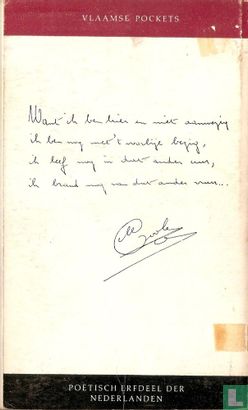 VLAAMSE POCKETS
Want ik ben hier en niet aanwezig
ik ben nog met 't vorige bezig,
ik leef nog in dat ander uur,
ik brand nog van dat ander vuur...
POËTISCH ERFDEEL DER
NEDERLANDEN